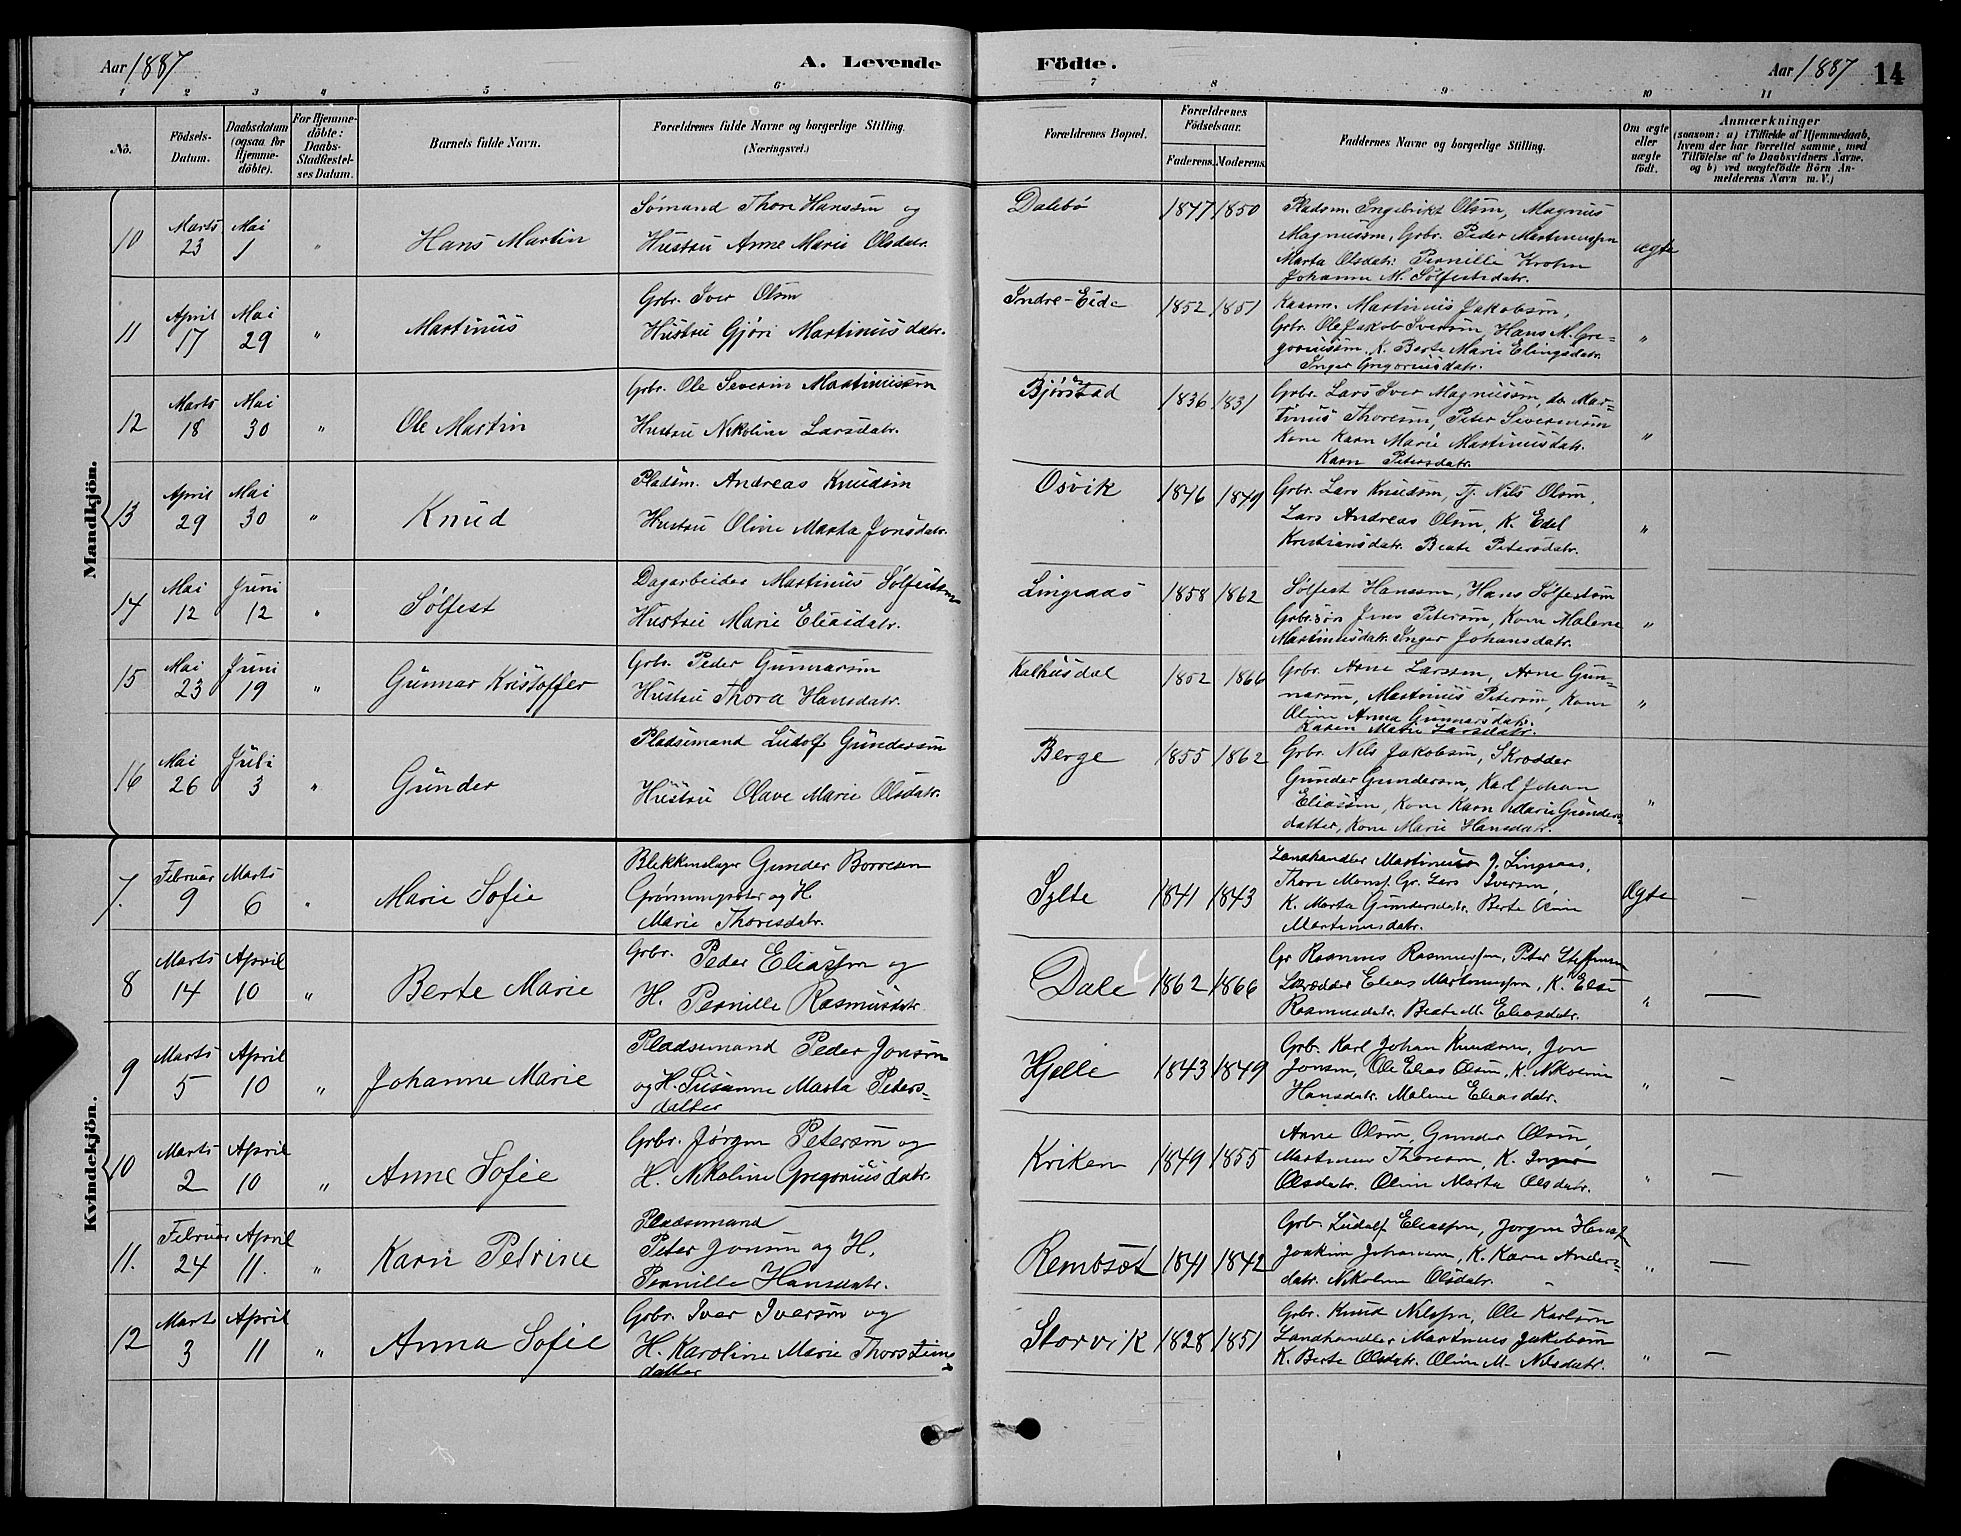 Aar 1887
A. Levende
Födte.
Aar 1887
14
1 2 3 4 5 6 7 8 9 10 11
No.
Födsels-
Datum.
Daabsdatum
(ogsaa for
Hjemme-
döbte).
For Hjemme-
döbte:
Daabs-
Stadfæstel-
ses Datum.
Barnets fulde Navn.
Forældrenes fulde Navne og borgerlige Stilling.
(Næringsvei.)
Forældrenes Bopæl.
Forældrenes
Födselsaar.
Faderens. Moderens.
Faddernes Navne og borgerlige Stilling.
Om ægte
eller
uægte
födt.
Anmærkninger
(saasom: a) i Tilfælde af Hjemmedaab,
hvem der har forrettet samme, med
Tilföielse af to Daabsvidners Navne.
og b) ved uægtefödte Börn An-
melderens Navn m. V.)
Mandkjön.
10
Marts
23
Mai
1
"
Hans Martin
Sømand Thore Hanssøn og
Hustru Anne Marie Olsdatr.
Dalebø
1847 1850
Pladsm. Ingebrikt Olsøn, Magnus
Magnussøn, Grbr. Peder Martinussen
Marta Olsdatr. Pernille Krohn
Johanne M. Sølfestsdatr.
ægte
11
April
17
Mai
29
"
Martinus
Grbr. Iver Olsøn
Hustru Gjøri Martinusdatr.
Indre-Eide
1852 1851
Kaarm. Martinus Jakobsøn,
Grbr. Ole Jakob Iversøn, Hans M. Gre-
goriussøn, K. Berte Marie Elingsdatr.
Inger Gregoriusdatr.
"
12
Marts
18
Mai
30
"
Ole Martin
Grbr. Ole Severin Martinussøn
Hustru Nikoline Larsdatr.
Bjørstad
1836 1831
Grbr. Lars Iver Magnussøn, do Mar-
tinus Thoresøn, Peter Severinsøn
Kone Karn Marie Martinusdatr.
Karn Petersdatr.
"
13
April
29
Mai
30
"
Knud
Pladsm. Andreas Knudsøn
Hustru Oline Marta Jonsdatr.
Osvik
1846 1849
Grbr. Lars Knudsøn, Tj. Nils Olsøn,
Lars Andreas Olsøn, K. Edel
Kristiansdatr. Beate Petersdatr.
"
14
Mai
12
Juni
12
"
Sølfest
Dagarbeider Martinus Sølfestsøn
Hustru Marie Eliasdatr.
Lingeaas
1858 1862
Sølfest Hanssøn, Hans Sølfestsøn
Grbr.søn Jens Petersøn, Kone Malene
Martinusdatr. Inger Johansdatr.
"
15
Mai
23
Juni
19
"
Gunnar Kristoffer
Grb. Peder Gunnarsøn
Hustru Thora Hansdatr.
Kalhusdal
1852 1866
Grbr. Arne Larssøn, Arne Gun-
narsøn, Martinus Petersøn, Kone
Oline Anna Gunnarsdatr.
Karen Marie Larsdatr.
"
16
Mai
26
Juli
3
"
Gunder
Pladsemand Ludolf Gundersøn
Hustru Olave Marie Olsdatr.
Berge
1855 1862
Grbr. Nils Jakobsøn, Skrædder
Gunder Gundersøn, Karl Johan
Eliassøn, Kone Karn Marie Gunders-
datter, Kone Marie Hansdatr.
"
Kvindekjön.
7.
Februar
9
Marts
6
"
Marie Sofie
Blekkenslager Gunder Borresen
og H.
Marie Thoresdatr.
Sylte
1841 1843
Landhandler Martinus J. Lingeaas,
Thore Monss. Gr. Lars Iversøn,
K. Marta Gundersdatr. Berte Oline
Martinusdatr.
Ægte
—
8
Marts
14
April
10
"
Berte Marie
Grbr. Peder Eliassøn og
H. Pernille Rasmusdatr.
Dale
1862 1866
Gr Rasmus Rasmussen, Peter Steffensen
Skrædder Elias Martinussøn, K. Else
Rasmusdatr. Beate M. Eliasdatr.
"
—
9
Marts
5
April
10
"
Johanne Marie
Pladsemand Peder Jonsøn
og H. Susanne Marta Peters-
datter
Hjelle
1843 1849
Grb. Karl Johan Knudsøn, Jon
Jonsøn, Ole Elias Olsøn, K. Nikoline
Hansdatr. Malene Eliasdatr.
"
—
10
Marts
2
April
10
"
Anne Sofie
Grbr. Jørgen Petersøn og
H. Nikoline Gregoriusdatr.
Kriken
1849 1855
Arne Olsøn, Gunder Olsøn,
Martinus Thoresøn, K. Inger
Olsdatr. Oline Marta Olsdatr.
"
—
11.
Februar
24
April
11.
"
Karn Petrine
Pladsemand
Peter Jonsøn og H.
Pernille Hansdatr.
Rembsøt
1841 1842
Grb. Ludolf Eliassøn, Jørgen Hanss.
Joakim Johansen, K. Karn Anders-
datr. Nikoline Olsdatr.
"
—
12
Marts
3
April
11
"
Anna Sofie
Grbr. Iver Iversøn og
H. Karoline Marie Thorsteins-
datter
Storvik
1828 1851
Grbr. Knud Nilssøn, Ole Karlsøn
Landhandler Martinus Jakobsøn
K. Berte Olsdatr. Oline M. Nilsdatr.
"
—